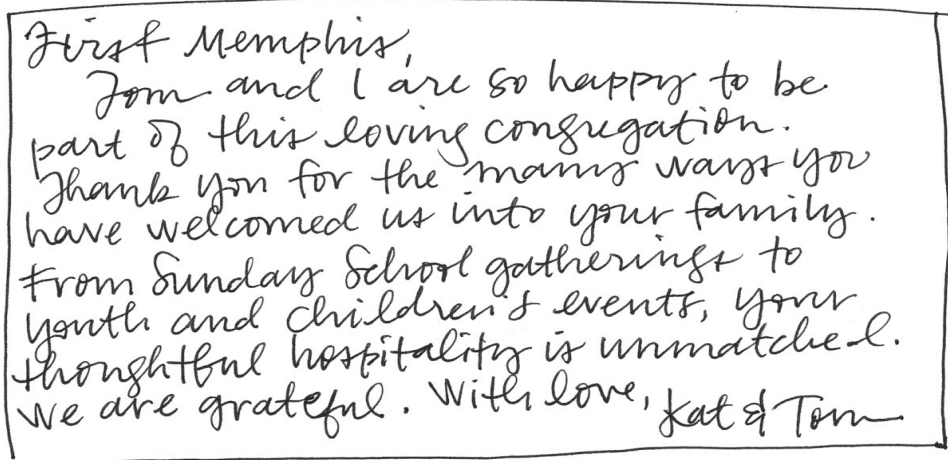 First Memphis,
Tom and I are so happy to be
part of this loving congregation.
Thank you for the many ways you
have welcomed us into your family.
From Sunday School gatherings to
youth and children's events, your
thoughtful hospitality is unmatched.
We are grateful. With love, Kat & Tom